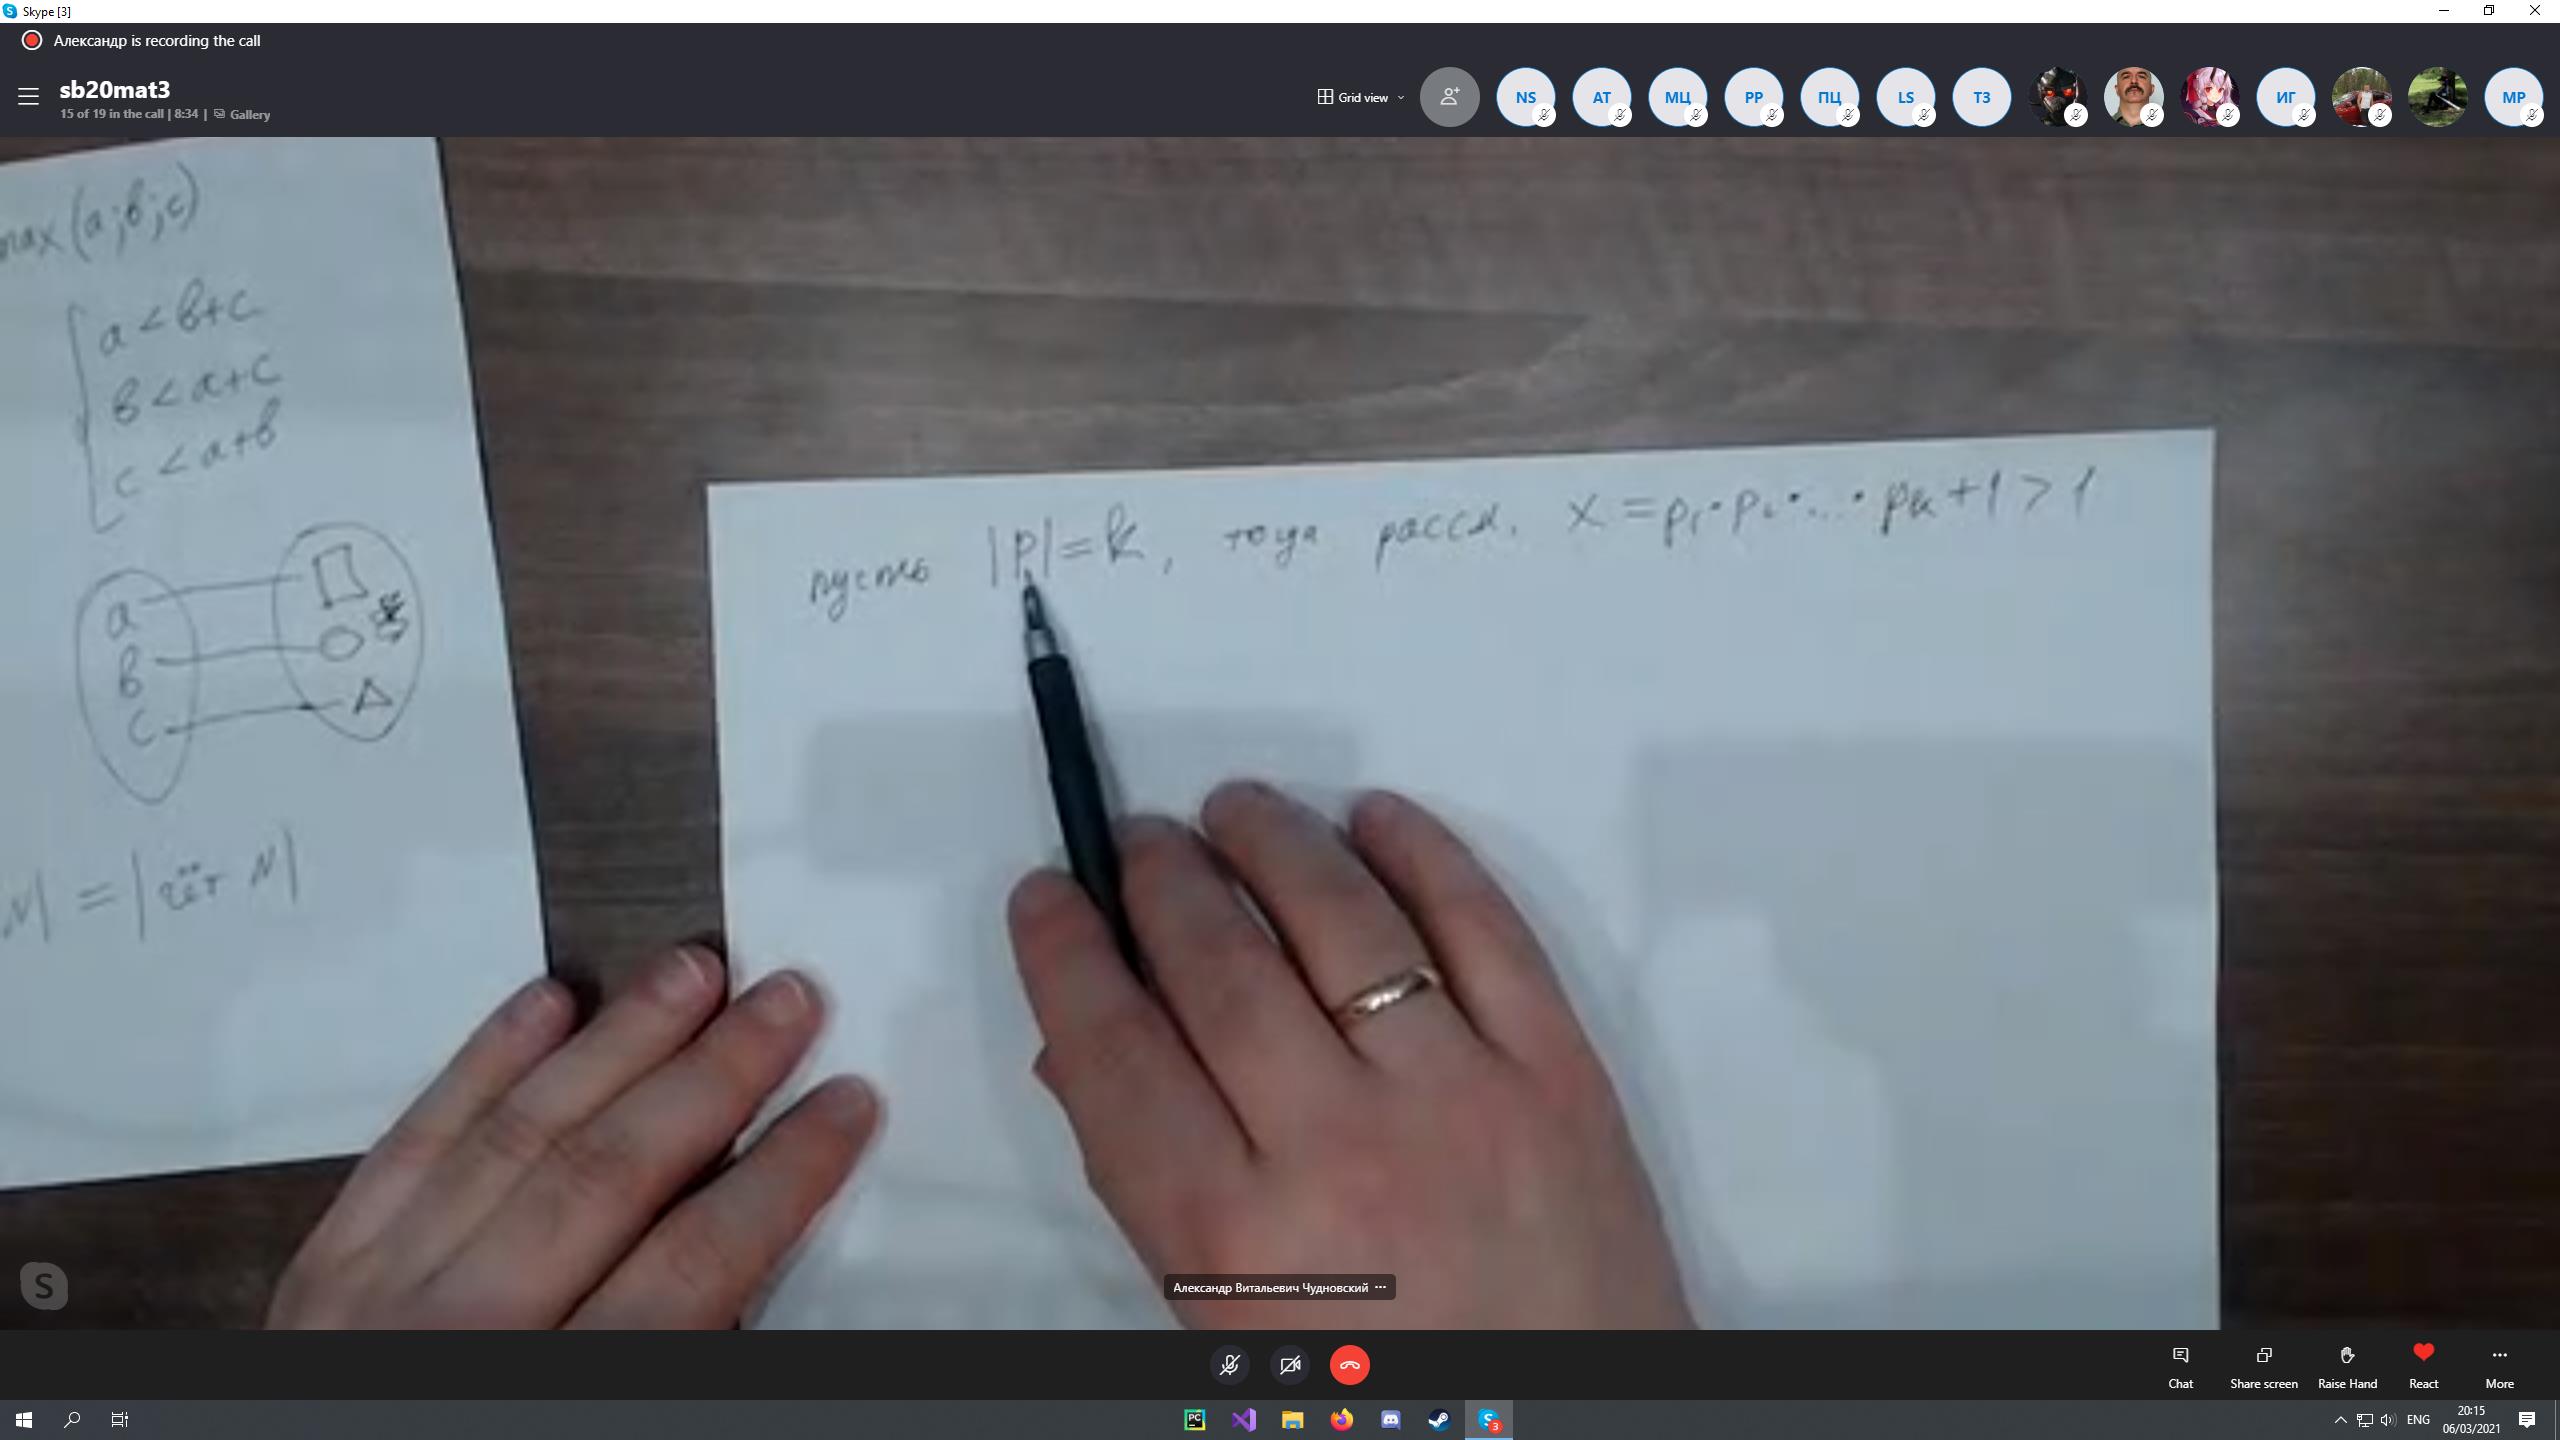 Skype [3]
Александр is recording the call
sb20mat3
15 of 19 in the call | 8:34 | Gallery
Grid view
NS
AT
МЦ
PP
ПЦ
LS
ТЗ
ИГ
MP
max (a;b;c)
a < b+c
b < a+c
c < a+b
a
b
c
N| = |чёт N|
пусть |P| = k, тогда рассм. x = p₁·p₂·...·pₖ+1 > 1
S
Александр Витальевич Чудновский ...
Chat
Share screen
Raise Hand
React
More
PC
3
ENG
20:15
06/03/2021